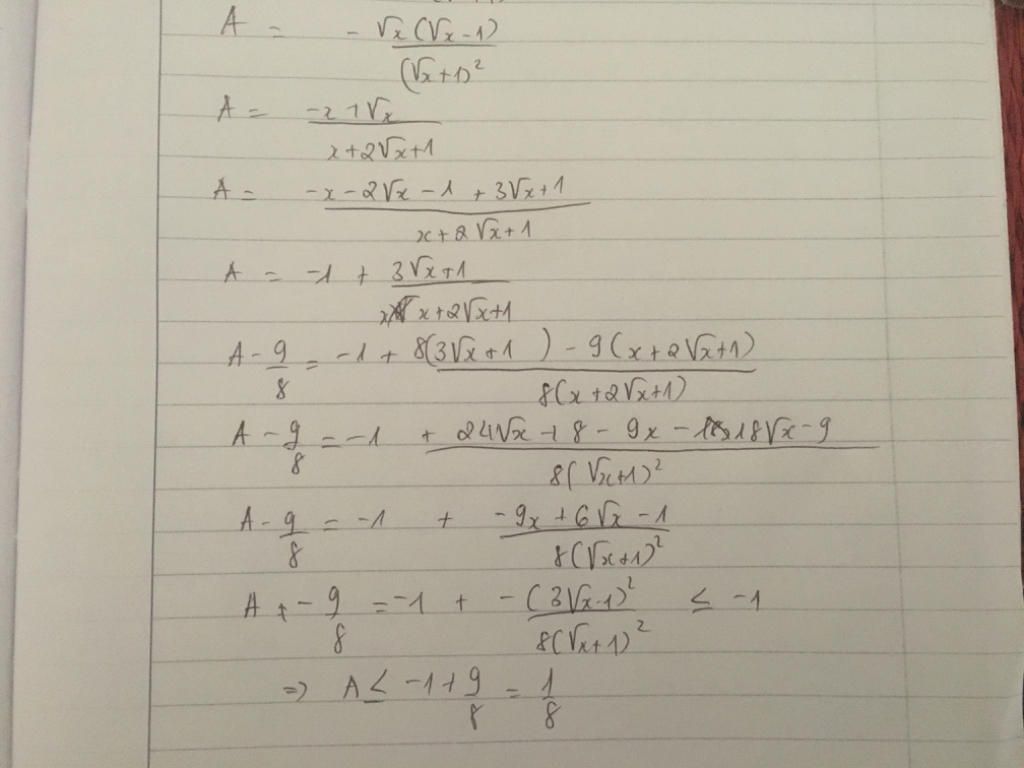 A = - √x(√x-1) / (√x+1)²
A = -x+√x / x+2√x+1
A = -x-2√x-1+3√x+1 / x+2√x+1
A = -1 + 3√x+1 / x+2√x+1
A - 9/8 = -1 + 8(3√x+1) - 9(x+2√x+1) / 8(x+2√x+1)
A - 9/8 = -1 + 24√x+8-9x-18√x-9 / 8(√x+1)²
A - 9/8 = -1 + -9x+6√x-1 / 8(√x+1)²
A + - 9/8 = -1 + -(3√x-1)² / 8(√x+1)² ≤ -1
=> A ≤ -1 + 9/8 = 1/8